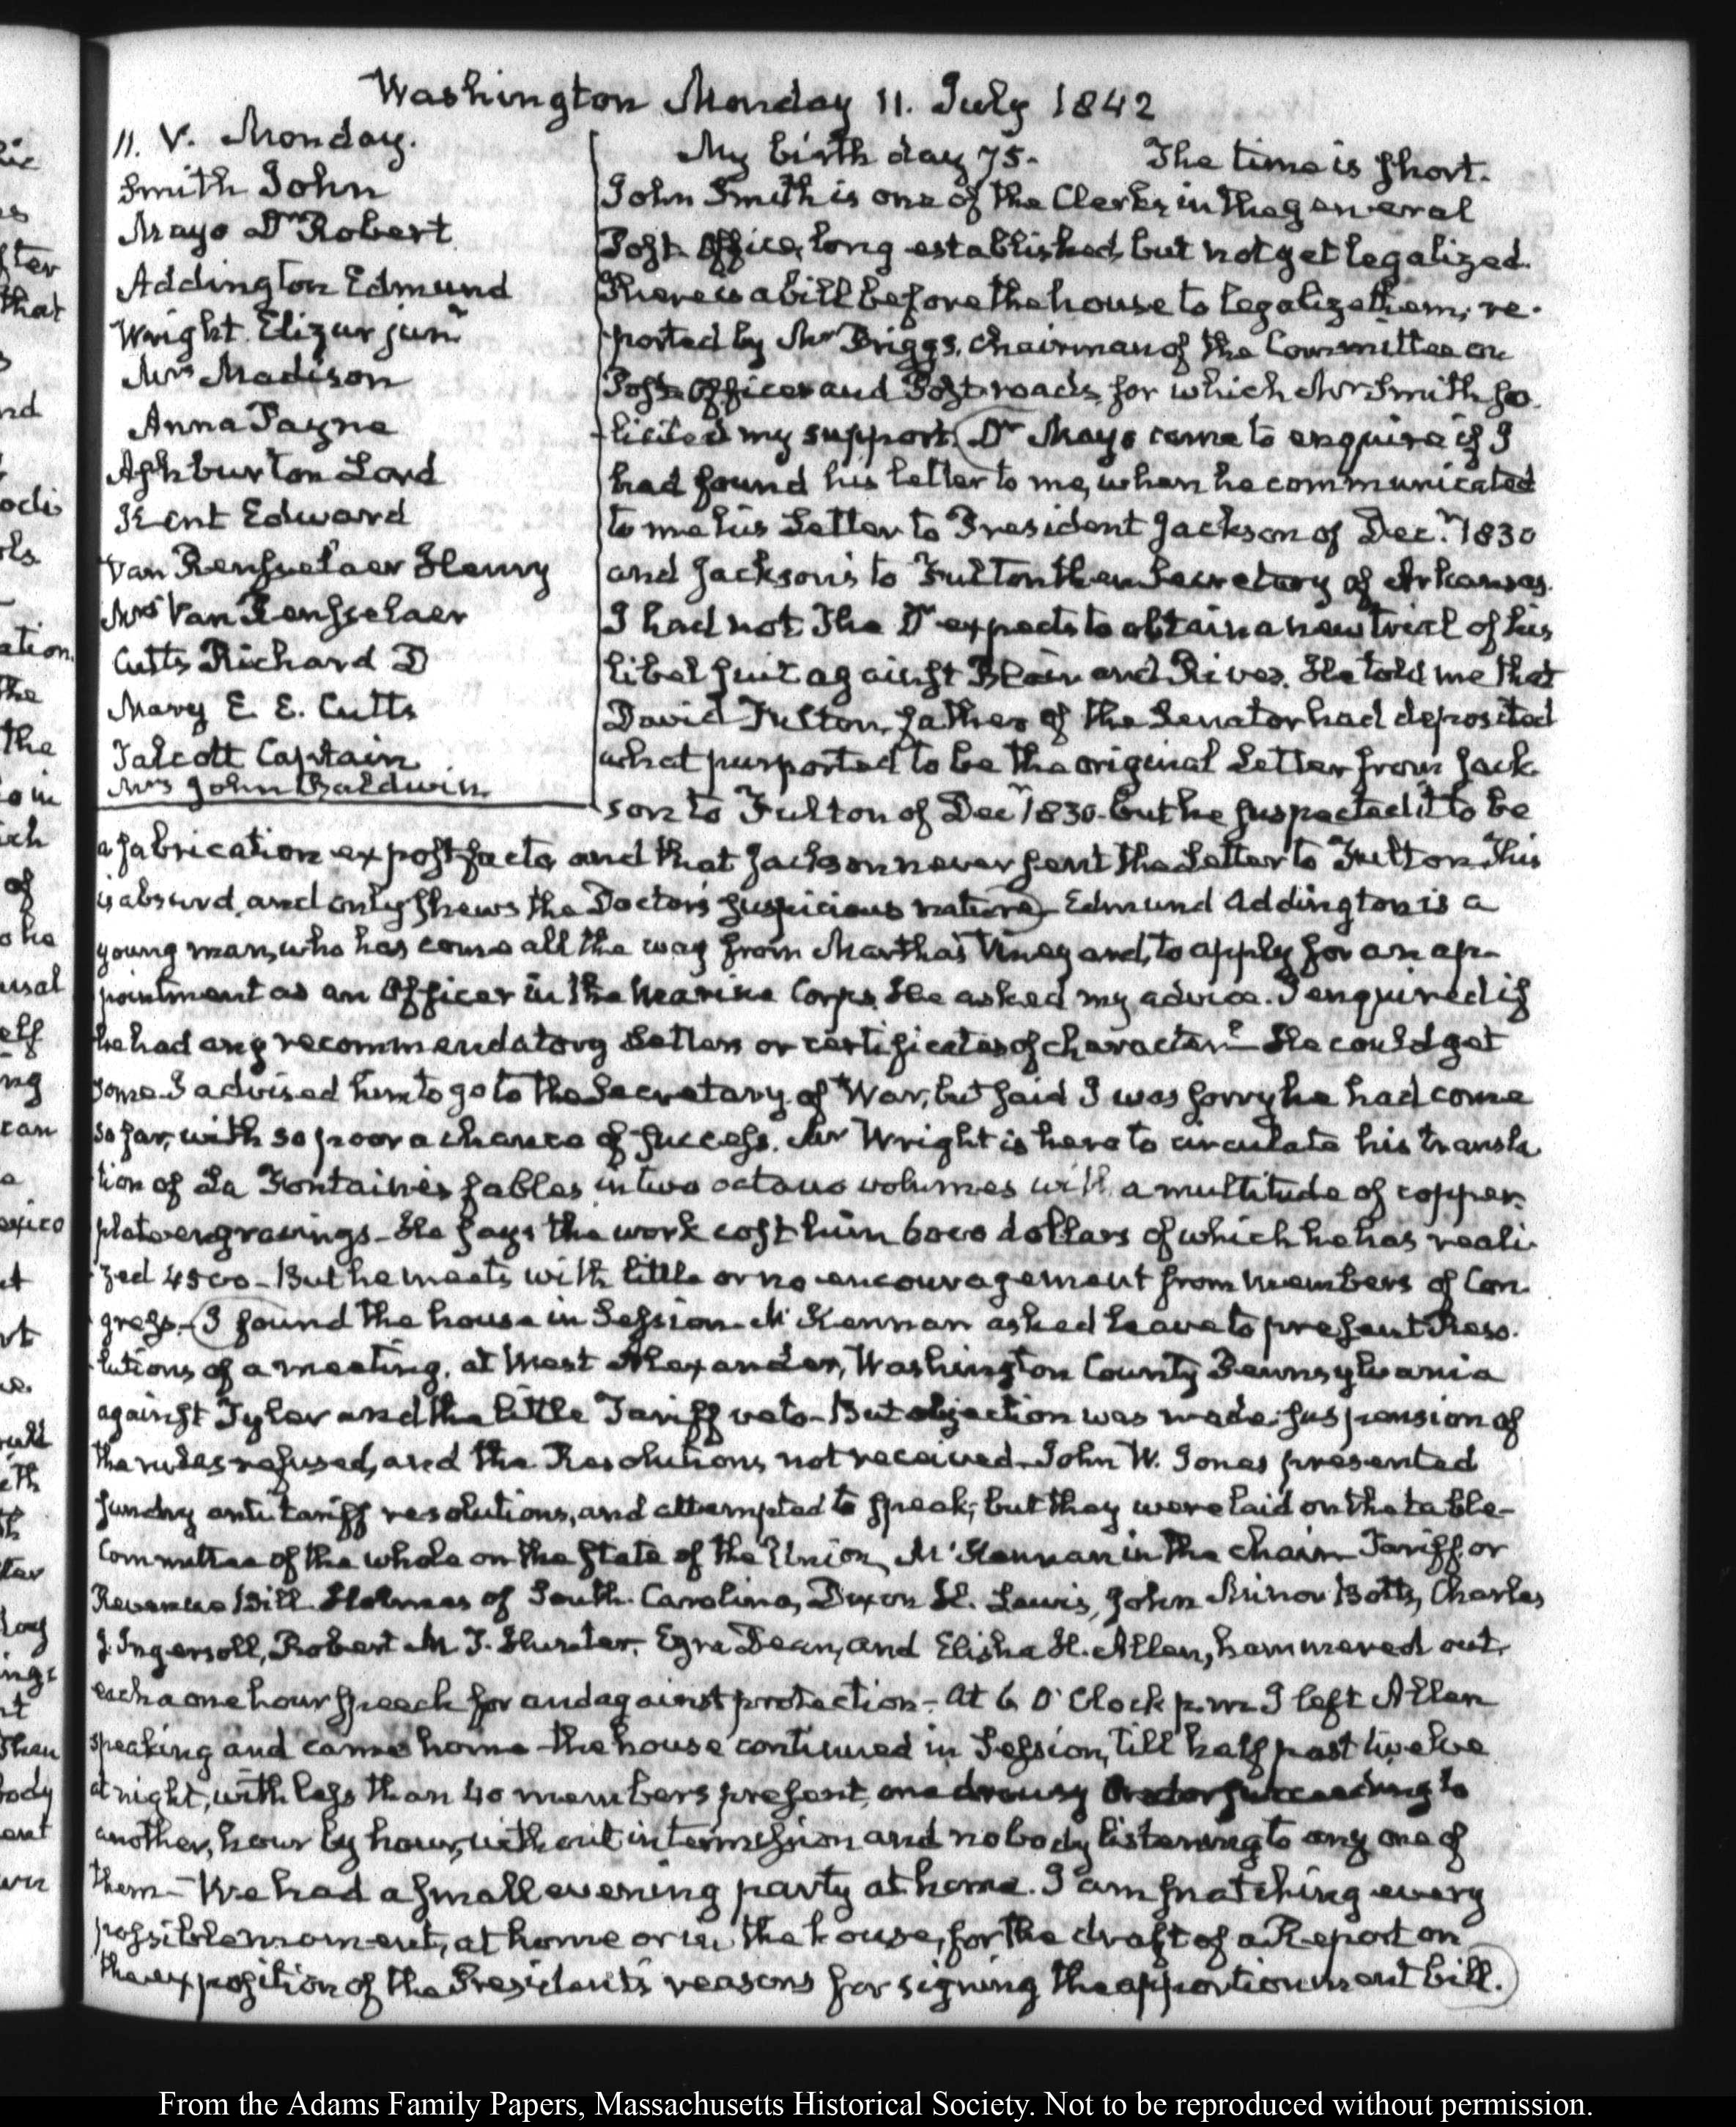 Washington Monday 11. July 1842
11. V. Monday.
Smith John
Mayo Dr Robert
Addington Edmund
Wright Elizur junr
Mrs Madison
Anna Payne
Ashburton Lord
Kent Edward
Van Rensselaer Henry
Mrs Van Rensselaer
Cutts Richard D
Mary E. E. Cutts
Talcott Captain
Mrs John Baldwin
My birth day 75. The time is short.
John Smith is one of the Clerks in the general
Post-Office, long established, but not yet legalized.
There is a bill before the house to legalize them, re-
ported by Mr Briggs, chairman of the Committee on
Post-Offices and Post-roads, for which Mr Smith so-
licited my support. Dr Mayo came to enquire if I
had found his letter to me, when he communicated
to me his Letter to President Jackson of Decr 1830
and Jackson's to Fulton then Secretary of Arkansas.
I had not. The Dr expects to obtain a new trial of his
libel suit against Blair and Rives. He told me that
David Fulton, father of the Senator had deposited
what purported to be the original Letter from Jack-
son to Fulton of Decr 1830. but he suspected it to be
a fabrication ex post facto, and that Jackson never sent the Letter to Fulton. This
is absurd, and only shews the Doctor's suspicious nature) Edmund Addington is a
young man, who has come all the way from Martha's Vineyard, to apply for an ap-
pointment as an Officer in the Marine Corps. He asked my advice. I enquired if
he had any recommendatory Letters or certificates of character? He could get
some. I advised him to go to the Secretary of War, but said I was sorry he had come
so far, with so poor a chance of success. Mr Wright is here to circulate his transla-
tion of La Fontaine's fables in two octavo volumes with a multitude of copper-
plate engravings. He says the work cost him 6000 dollars of which he has reali-
zed 4500 - But he meets with little or no encouragement from members of Con-
gress. (I found the house in Session. McKennan asked leave to present Reso-
lutions of a meeting, at West Alexander, Washington County Pennsylvania
against Tyler and the little Tariff veto - But objection was made, suspension of
the rules refused, and the Resolutions not received. John W. Jones presented
sundry anti tariff resolutions, and attempted to speak; but they were laid on the table -
Committee of the whole on the State of the Union, McKennan in the chair. Tariff or
Revenue Bill. Holmes of South Carolina, Dixon H. Lewis, John Minor Botts, Charles
J. Ingersoll, Robert M T. Hunter, Ezra Dean, and Elisha H. Allen, hammered out,
each a one hour speech for and against protection - At 6 O'Clock p.m I left Allen
speaking and came home - the house continued in Session, till half past twelve
at night, with less than 40 members present, one drowsy Orator succeeding to
another, hour by hour, without intermission and nobody listening to any one of
them - We had a small evening party at home. I am snatching every
possible moment, at home or in the house, for the draft of a Report on
the exposition of the President's reasons for signing the apportionment bill.)
From the Adams Family Papers, Massachusetts Historical Society. Not to be reproduced without permission.